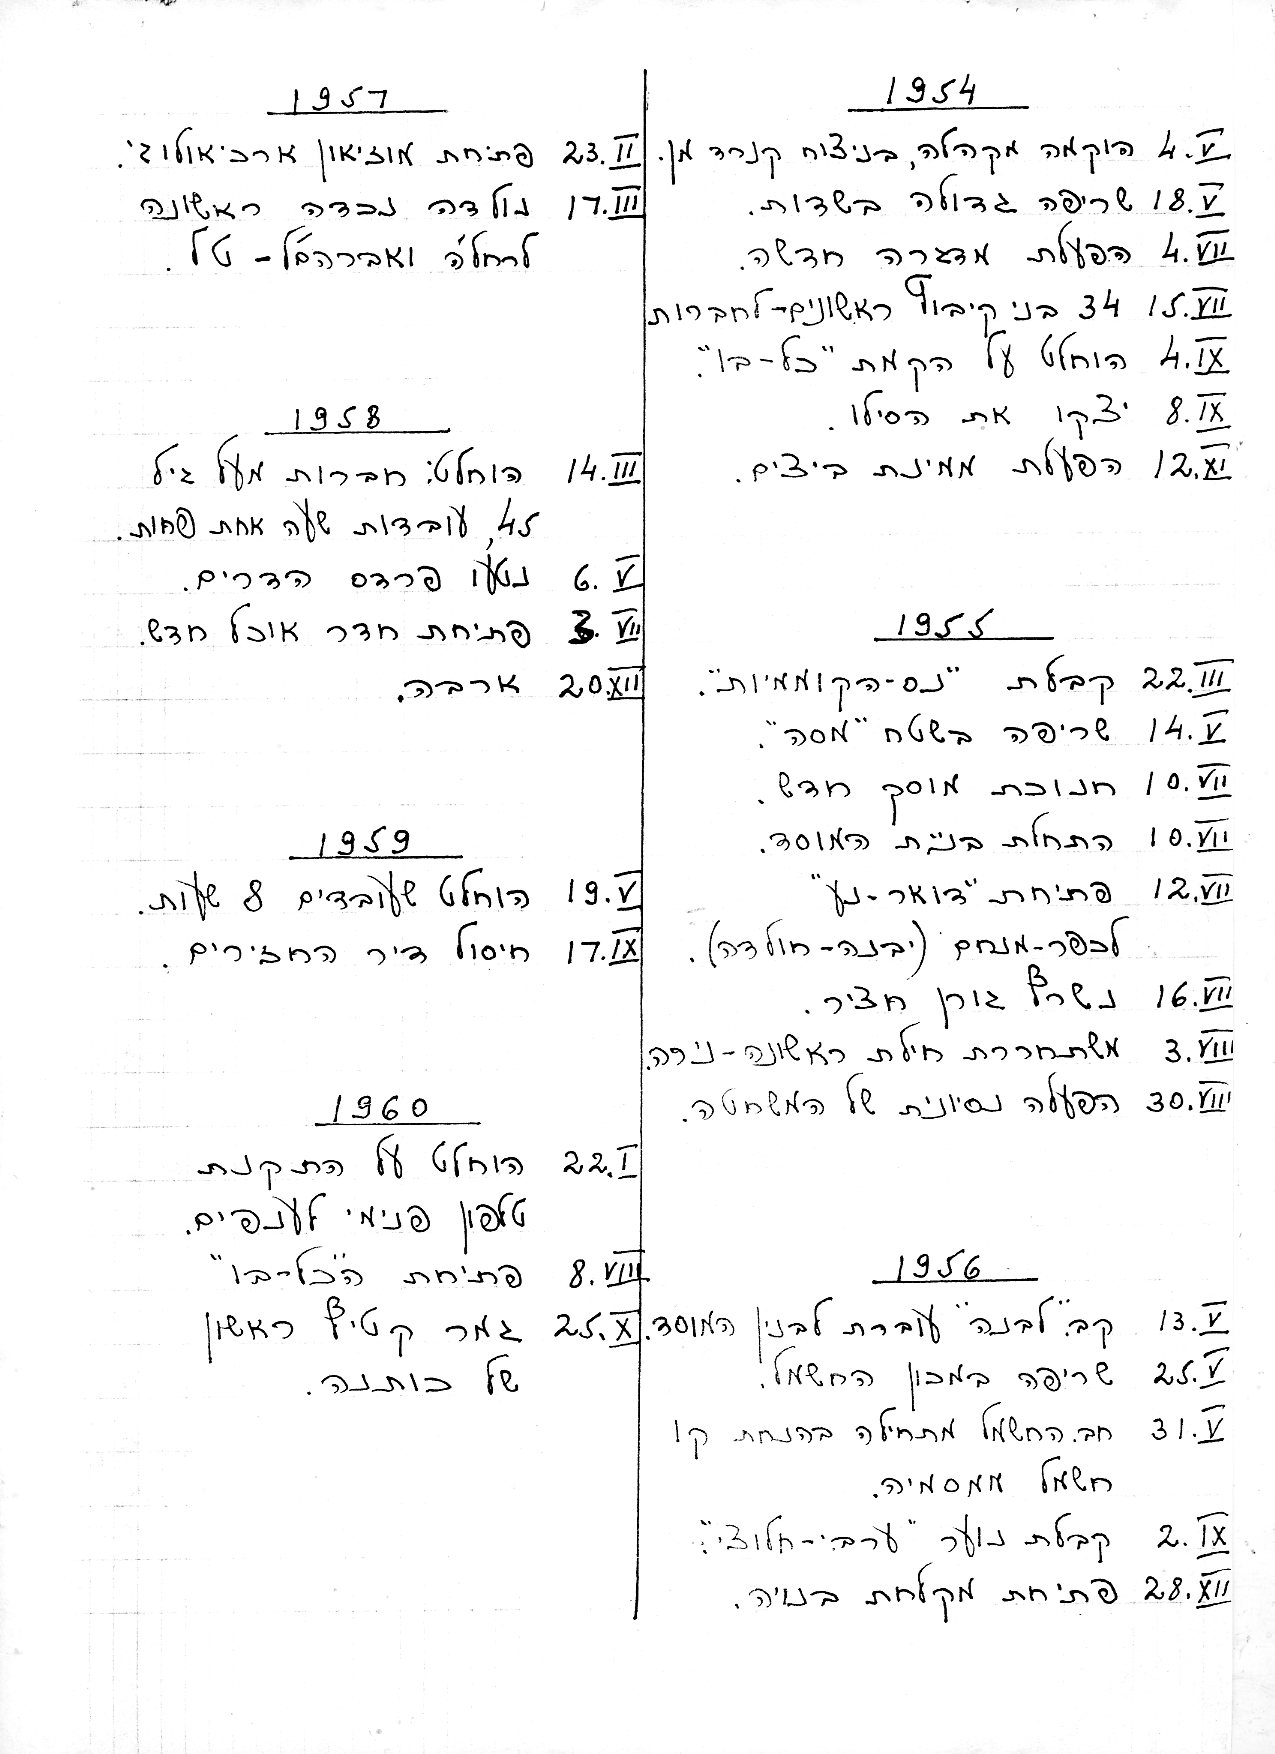 1954
4.V הוקמה מקהלה, בניצוח קנרד מן.
18.V שריפה גדולה בשדות.
4.VII הפעלת מדגרה חדשה.
15.VII 34 בני קיבוץ ראשונים-לחברות
4.IX הוחלט על הקמת "כל-בו".
8.IX יצקו את הסילו.
12.XI הפעלת ממינת ביצים.
1955
22.III קבלת "נס-הקוממיות".
14.V שריפה בשטח "מסה".
10.VII חנוכת מוסך חדש.
10.VII התחלת בנית המוסד.
12.VII פתיחת "דואר-נע"
לכפר-מנחם (יבנה-חולדה).
16.VII נשרף גורן חציר.
3.VIII משתחררת חילת ראשונה-נירה.
30.VIII הפעלה נסיונית של המשחטה.
1956
13.V קב. "לבנה" עוברת לבנין המוסד.
25.V שריפה במכון החשמל.
31.V חב. החשמל מתחילה בהנחת קו
חשמל ממסמיה.
2.IX קבלת נוער "ערבי-חלוצי".
28.XII פתיחת מקלחת בנויה.
1957
23.II פתיחת מוזיאון ארכיאולוגי.
17.III נולדה נכדה ראשונה
לרחל'ה ואברהמ'ל - טל.
1958
14.III הוחלט: חברות מעל גיל
45, עובדות שעה אחת פחות.
6.V נטעו פרדס הדרים.
3.VII פתיחת חדר אוכל חדש.
20.XII ארבה.
1959
19.V הוחלט שעובדים 8 שעות.
17.IX חיסול דיר החזירים.
1960
22.I הוחלט על התקנת
טלפון פנימי לענפים.
8.VIII פתיחת ה"כל-בו"
25.X גמר קטיף ראשון
של כותנה.